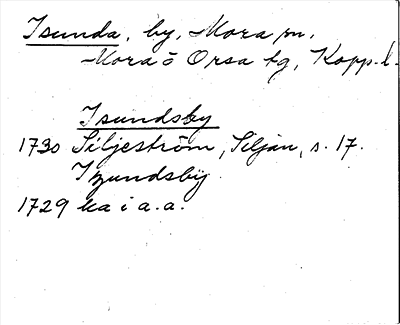 Isunda, by, Mora sn,
Mora o Orsa tg, Kopp. l.
Isundsby
1730 Siljeström, Siljan, s. 17.
Izundsbÿ
1729 ka i a.a.